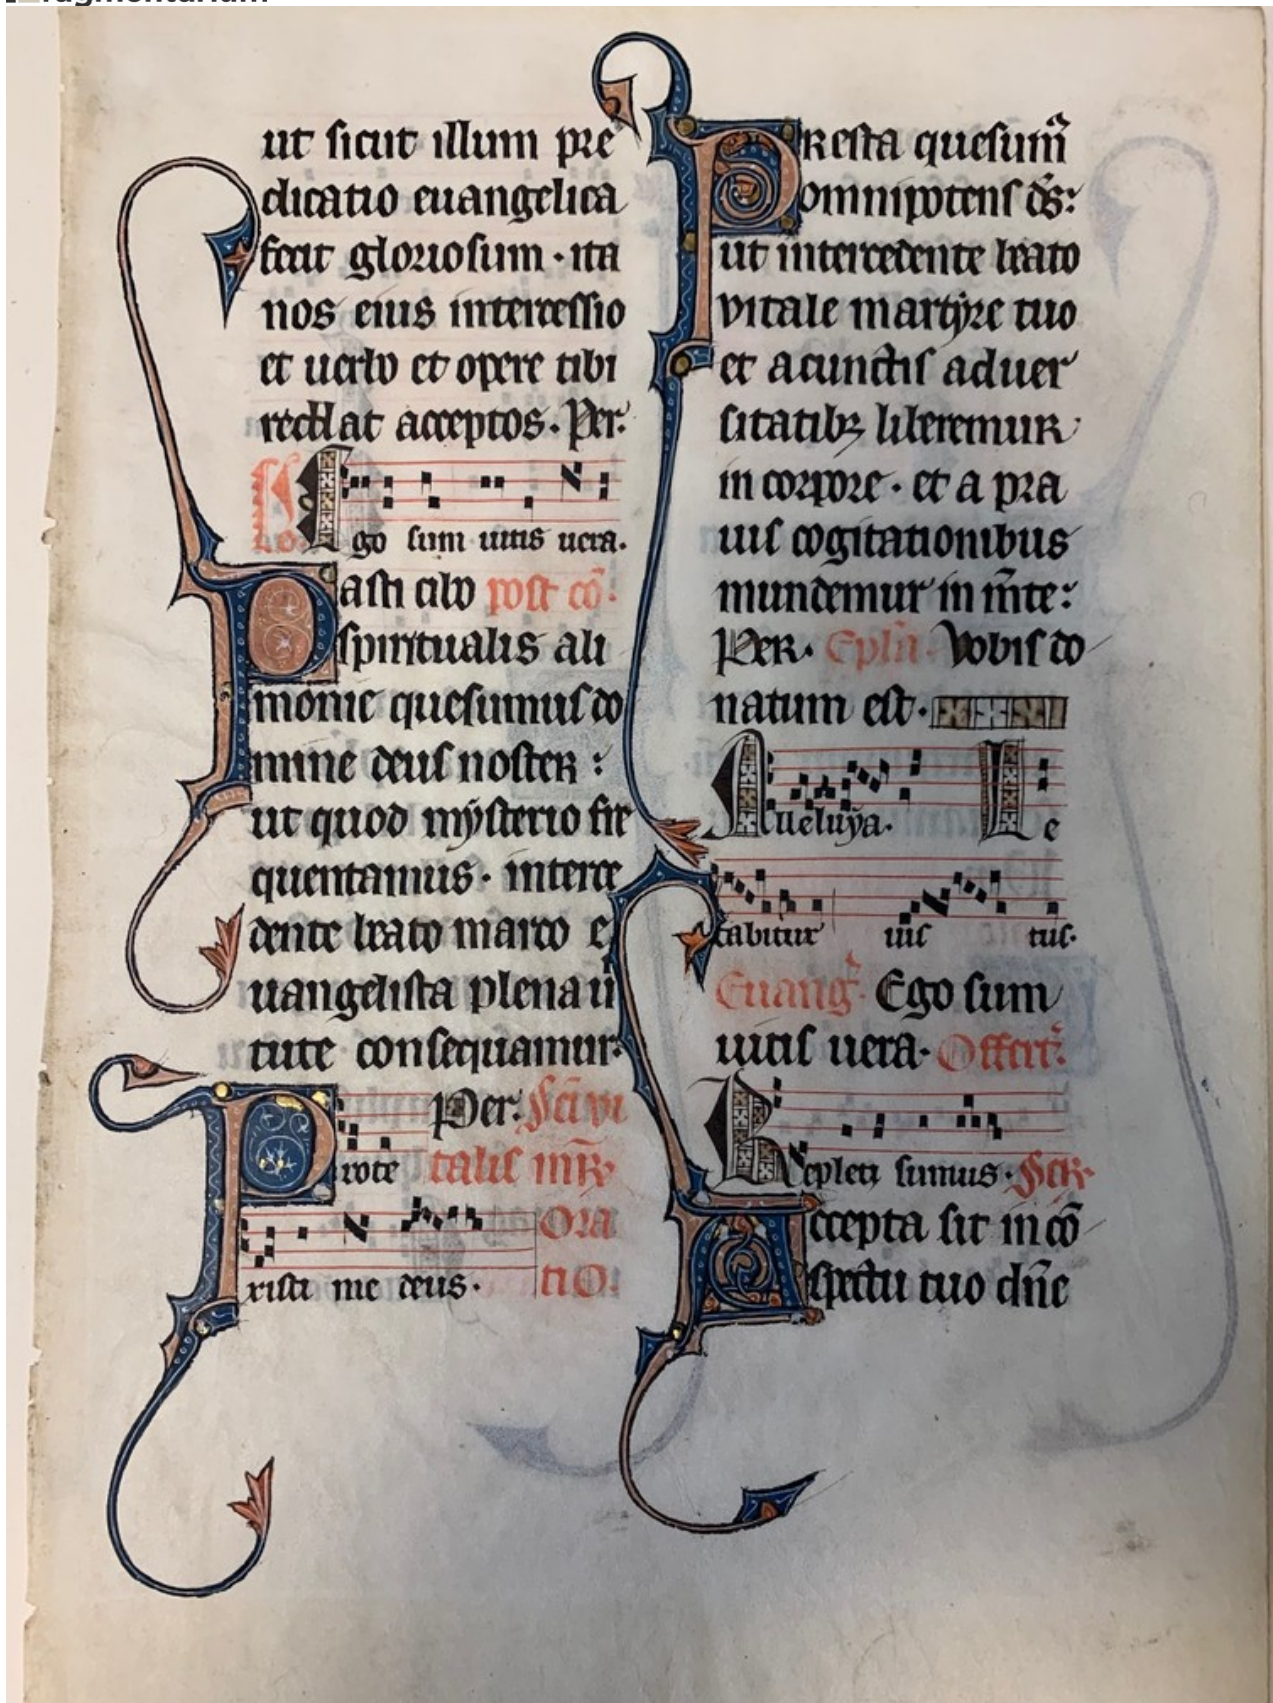 ut sicut illum pre
dicatio euangelica
fecit gloriosum · ita
nos eius intercessio
et uerbo et opere tibi
reddat acceptos. Per.
Co
Ego sum uitis uera.
Pasti cibo post cō.
spiritualis ali
monie quesumus do
mine deus noster :
ut quod mysterio fre
quentamus · interce
dente beato marco e
uangelista plena ui
tute consequamur.
Per. Sci vi
Prote talis mr̄is
Ora
xisti me deus. tio.
Presta quesum᷒
omnipotens ds̄:
ut intercedente beato
vitale martyre tuo
et a cunctis aduer
sitatibꝫ liberemur
in corpore · et a pra
uis cogitationibus
mundemur in m̄te:
Per. Epl'a. Vobis do
natum est.
Aueluya. Le
tabitur iustus.
Euang. Ego sum
uitis uera. Offert.
Repleti sumus. Secr.
Accepta sit in cō
spectu tuo dn̄e